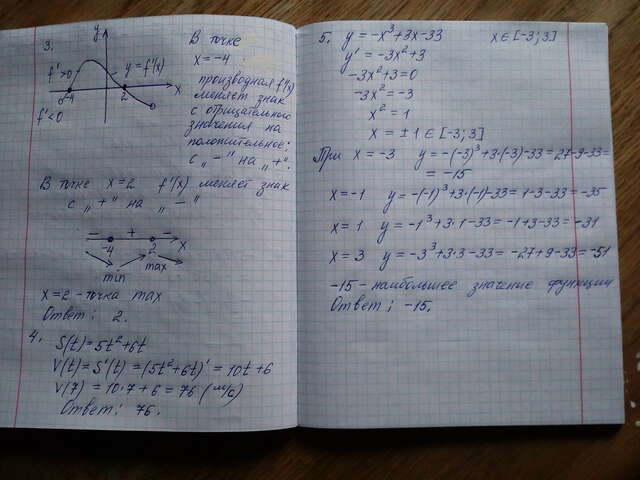 3.
y
f'>0
y=f'(x)
-4
2
x
f'<0
В точке
x=-4
производная f'(x)
меняет знак
с отрицательного
значения на
положительное:
с „-" на „+".
В точке x=2 f'(x) меняет знак
с „+" на „-"
- + -
-4 2 x
min max
x=2 - точка max
Ответ: 2.
4. S(t)=5t²+6t
V(t)=S'(t)=(5t²+6t)'=10t+6
V(7)=10·7+6=76 (м/с)
Ответ: 76.
5. y=-x³+3x-33 x∈[-3;3]
y'=-3x²+3
-3x²+3=0
-3x²=-3
x²=1
x=±1∈[-3;3]
При x=-3 y=-(-3)³+3·(-3)-33=27-9-33=
=-15
x=-1 y=-(-1)³+3·(-1)-33=1-3-33=-35
x=1 y=-1³+3·1-33=-1+3-33=-31
x=3 y=-3³+3·3-33=-27+9-33=-51
-15-наибольшее значение функции
Ответ: -15.